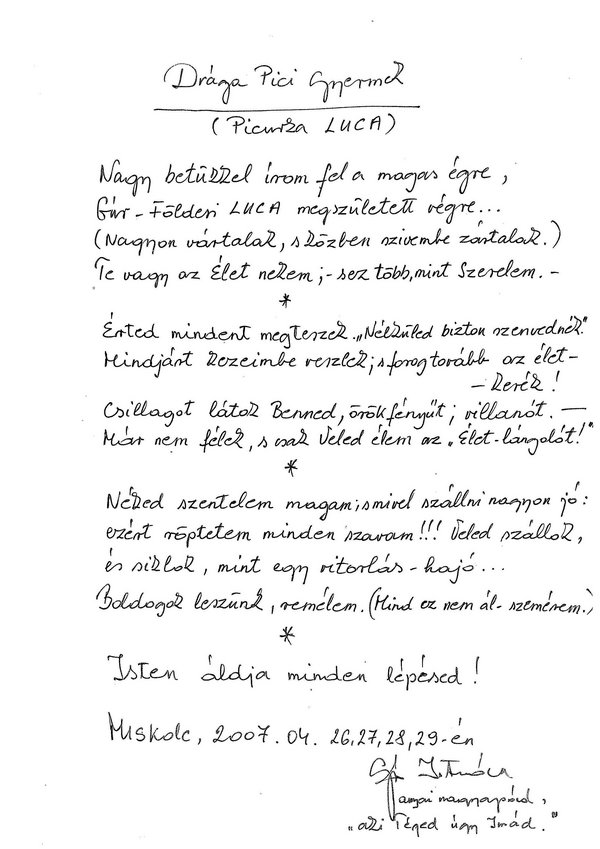 Drága Pici Gyermek
(Picurka LUCA)
Nagy betűkkel írom fel a magas égre,
Gúr-Földesi LUCA megszületett végre...
(Nagyon vártalak, s közben szivembe zártalak.)
Te vagy az Élet nekem;- s ez több, mint Szerelem. -
*
Érted mindent megteszek. „Nélküled bizton szenvednék."
Mindjárt kezeimbe veszlek; s forog tovább az élet-
- kerék!
Csillagot látok Benned, örökfényűt; villanót. —
Már nem félek, s csak Veled élem az „Élet-lángolót!"
*
Néked szentelem magam; s mivel szállni nagyon jó:
ezért röptetem minden szavam!!! Veled szállok,
és siklok, mint egy vitorlás-hajó...
Boldogok leszünk, remélem. (Mind ez nem ál-szemérem.)
*
Isten áldja minden lépésed!
Miskolc, 2007.04. 26,27,28,29-én
anyai nagyapád,
„aki Téged úgy Imád."